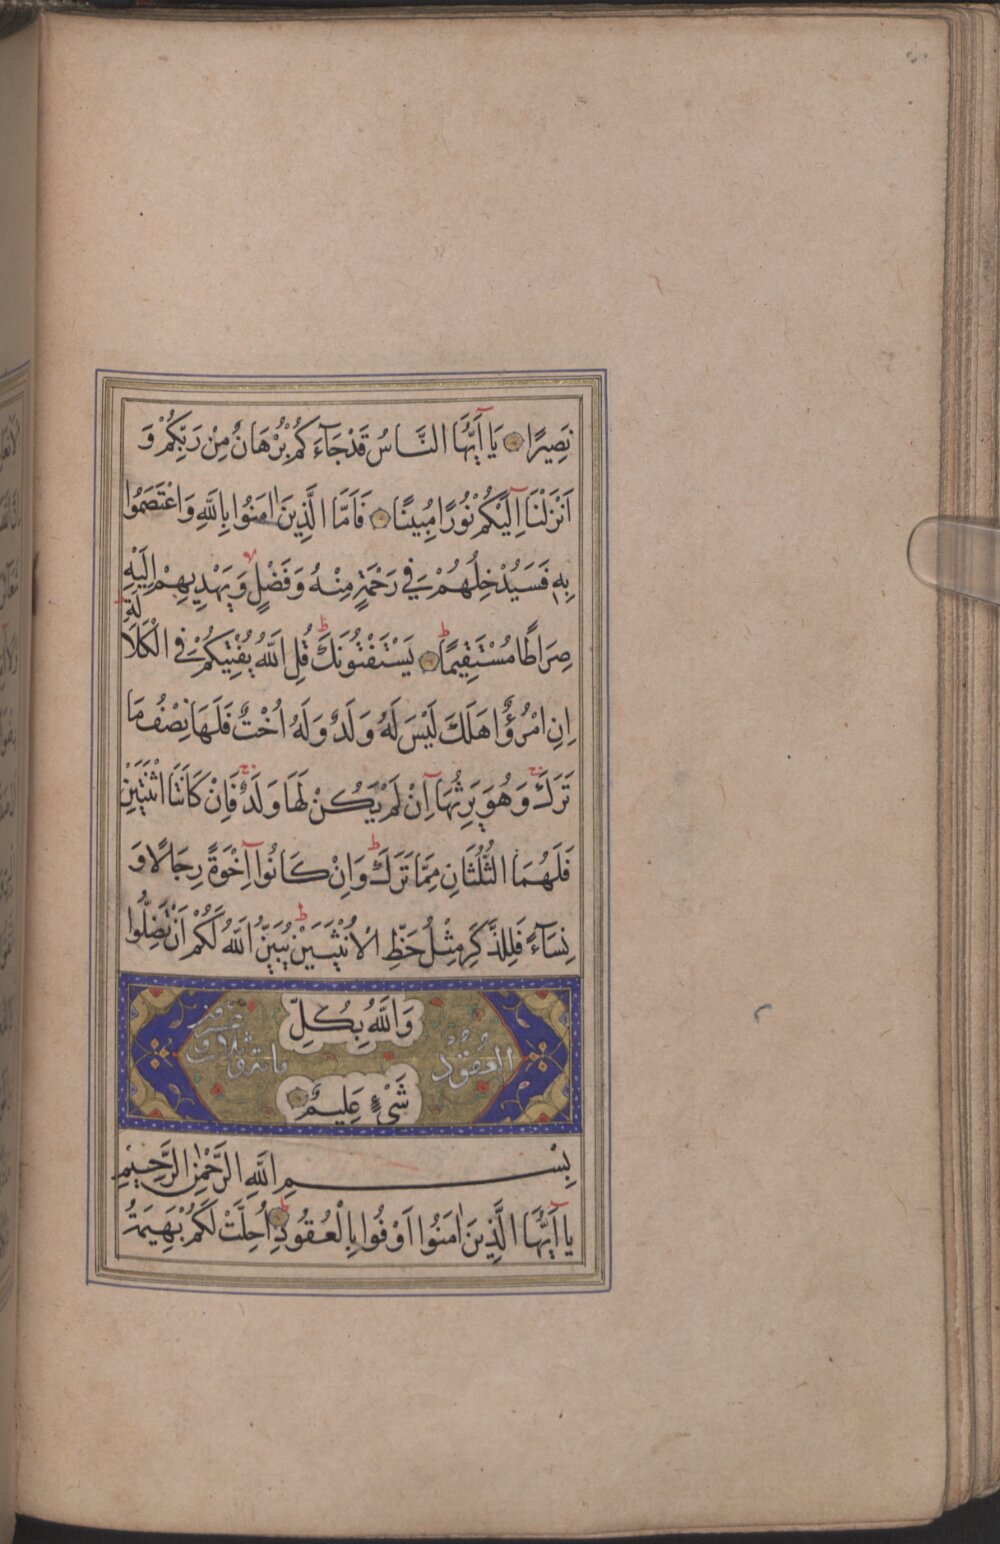 نَصِيرًا يَا أَيُّهَا النَّاسُ قَدْ جَآءَكُمْ بُرْهَانٌ مِنْ رَبِّكُمْ وَ
اَنْزَلْنَا اِلَيْكُمْ نُورًا مُبِينًا فَاَمَّا الَّذِينَ اٰمَنُوا بِاللّٰهِ وَاعْتَصَمُوا
بِهٖ فَسَيُدْخِلُهُمْ فِي رَحْمَةٍ مِنْهُ وَفَضْلٍ وَيَهْدِيهِمْ اِلَيْهِ
صِرَاطًا مُسْتَقِيمًا يَسْتَفْتُونَكَ قُلِ اللّٰهُ يُفْتِيكُمْ فِي الْكَلَالَةِ
اِنِ امْرُؤٌا هَلَكَ لَيْسَ لَهُ وَلَدٌ وَلَهُ اُخْتٌ فَلَهَا نِصْفُ مَا
تَرَكَ وَهُوَ يَرِثُهَا اِنْ لَمْ يَكُنْ لَهَا وَلَدٌ فَاِنْ كَانَتَا اثْنَتَيْنِ
فَلَهُمَا الثُّلُثَانِ مِمَّا تَرَكَ وَاِنْ كَانُوا اِخْوَةً رِجَالًا وَ
نِسَآءً فَلِلذَّكَرِ مِثْلُ حَظِّ الْاُنْثَيَيْنِ يُبَيِّنُ اللّٰهُ لَكُمْ اَنْ تَضِلُّوا
وَاللّٰهُ بِكُلِّ
العُقُوْدْ
مائة وثلاث و
شَيْءٍ عَلِيمٌ
بِسْمِ اللّٰهِ الرَّحْمٰنِ الرَّحِيمِ
يَا اَيُّهَا الَّذِينَ اٰمَنُوا اَوْفُوا بِالْعُقُودِ اُحِلَّتْ لَكُمْ بَهِيمَةُ